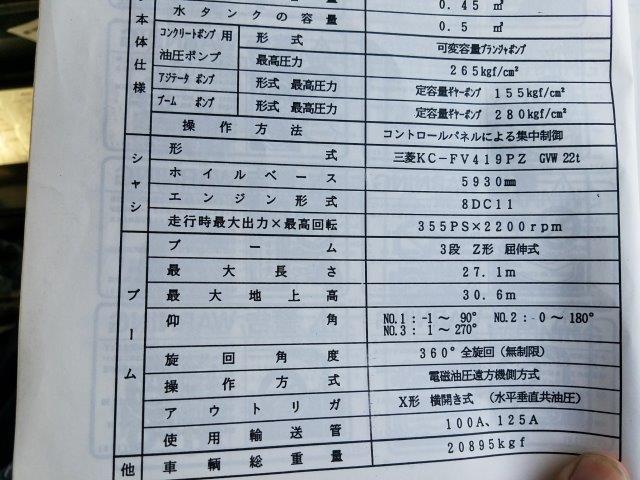 0.45 ㎥
水タンクの容量 0.5 ㎥
本体仕様
コンクリートポンプ用 形式 可変容量プランジャポンプ
油圧ポンプ 最高圧力 265kgf/cm²
アジテータ ポンプ 形式 最高圧力 定容量ギヤーポンプ 155kgf/cm²
ブーム ポンプ 形式 最高圧力 定容量ギヤーポンプ 280kgf/cm²
操作方法 コントロールパネルによる集中制御
シャシ
形式 三菱KC-FV419PZ GVW 22t
ホイルベース 5930㎜
エンジン形式 8DC11
走行時最大出力×最高回転 355PS×2200rpm
ブーム
ブーム 3段 Z形 屈伸式
最大長さ 27.1m
最大地上高 30.6m
仰角 NO.1：-1～ 90° NO.2：-0～180°
NO.3： 1～270°
旋回角度 360°全旋回（無制限）
操作方式 電磁油圧遠方機側方式
アウトリガ X形 横開き式 （水平垂直共油圧）
使用輸送管 100A、125A
他 車輌総重量 20895kgf